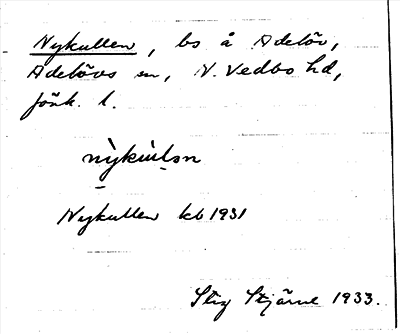 Nykullen, bs å Adelöv,
Adelövs sn, N. Vedbo hd,
Jönk. l.
nỳkùlən
Nykullen kb 1931
Stig Stjärne 1933.